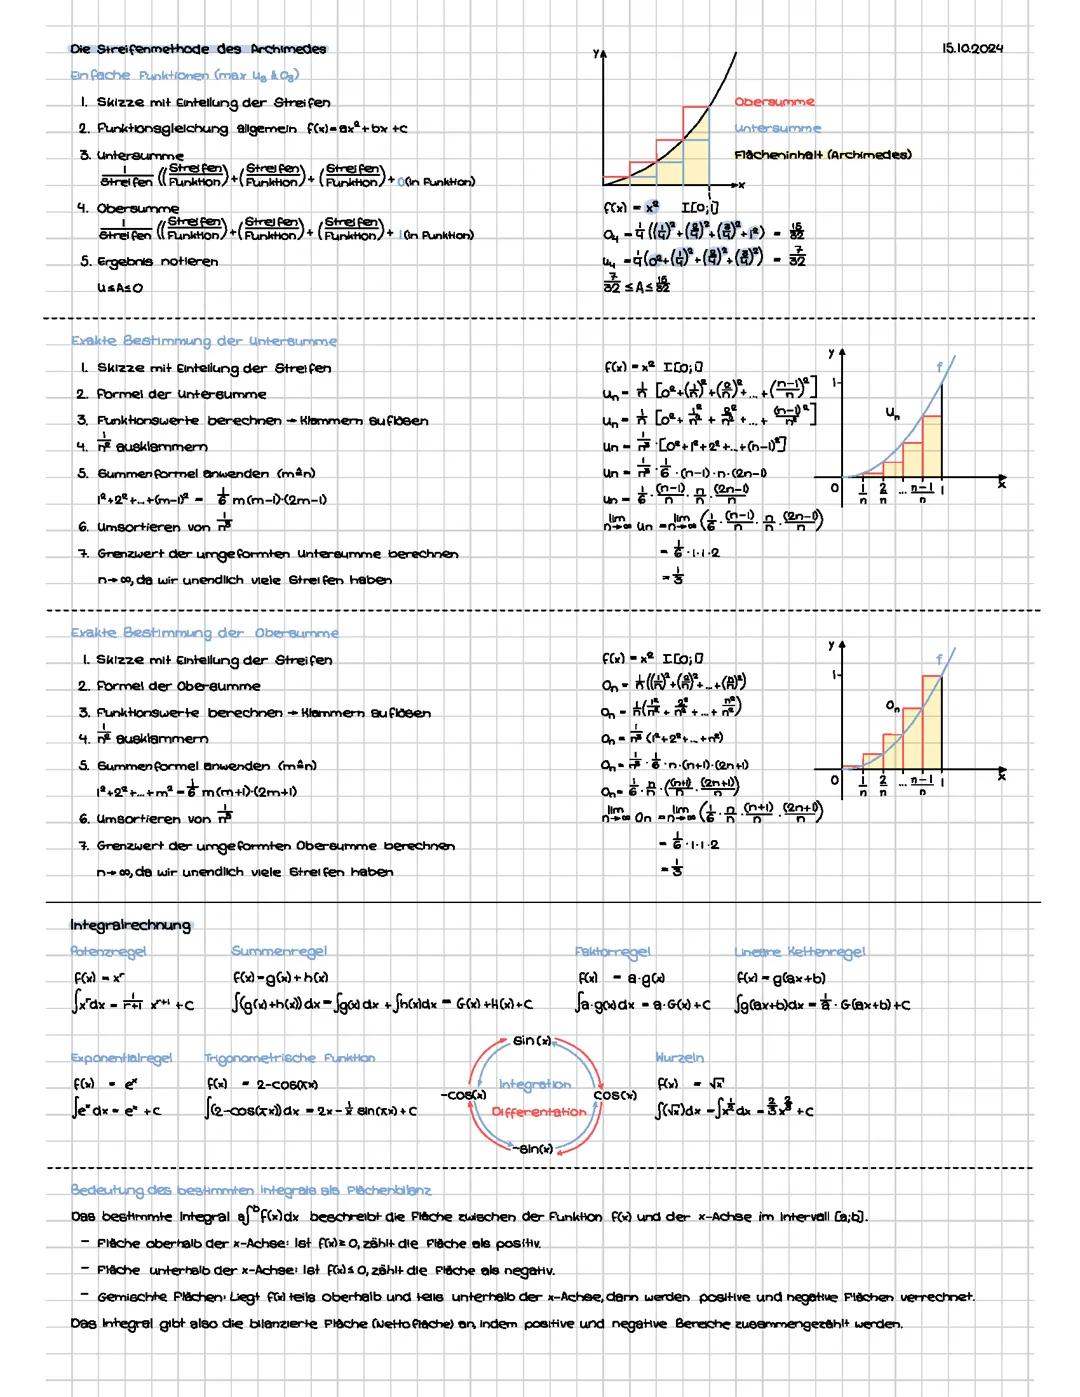 Die Streifenmethode des Archimedes
15.10.2024
Einfache Funktionen (max U₈ & O₈)
1. Skizze mit Einteilung der Streifen
2. Funktionsgleichung allgemein f(x)=ax²+bx+c
3. Untersumme
1/Streifen ((Streifen/Funktion)+(Streifen/Funktion)+(Streifen/Funktion)+0(in Funktion)
4. Obersumme
1/Streifen ((Streifen/Funktion)+(Streifen/Funktion)+(Streifen/Funktion)+1(in Funktion)
5. Ergebnis notieren
U≤A≤O
y
Obersumme
Untersumme
Flächeninhalt (Archimedes)
1
x
f(x) = x² I[0;1]
O₄ = 1/4 ((1/4)²+(2/4)²+(3/4)²+1²) = 15/32
U₄ = 1/4 (0²+(1/4)²+(2/4)²+(3/4)²) = 7/32
7/32 ≤ A ≤ 15/32
Exakte Bestimmung der Untersumme
1. Skizze mit Einteilung der Streifen
2. Formel der Untersumme
3. Funktionswerte berechnen → Klammern auflösen
4. 1/n² ausklammern
5. Summenformel anwenden (m≙n)
1²+2²+...+(m-1)² = 1/6 m(m-1)·(2m-1)
6. Umsortieren von 1/n³
7. Grenzwert der umgeformten Untersumme berechnen
n→∞, da wir unendlich viele Streifen haben
f(x) = x² I[0;1]
Uₙ = 1/n [0²+(1/n)²+(2/n)²+...+((n-1)/n)²]
Uₙ = 1/n [0²+1²/n²+2²/n²+...+(n-1)²/n²]
Un = 1/n³ ·[0²+1²+2²+...+(n-1)²]
Un = 1/n³ · 1/6 ·(n-1)·n·(2n-1)
Un = 1/6 · (n-1)/n · n/n · (2n-1)/n
lim n→∞ Un = lim n→∞ (1/6 · (n-1)/n · n/n · (2n-1)/n)
= 1/6 ·1·1·2
= 1/3
y
f
1
Uₙ
0 1/n 2/n ... n-1/n 1 x
Exakte Bestimmung der Obersumme
1. Skizze mit Einteilung der Streifen
2. Formel der Obersumme
3. Funktionswerte berechnen → Klammern auflösen
4. 1/n² ausklammern
5. Summenformel anwenden (m≙n)
1²+2²+...+m² = 1/6 m(m+1)·(2m+1)
6. Umsortieren von 1/n³
7. Grenzwert der umgeformten Obersumme berechnen
n→∞, da wir unendlich viele Streifen haben
f(x) = x² I[0;1]
Oₙ = 1/n ((1/n)²+(2/n)²+...+(n/n)²)
Oₙ = 1/n (1²/n²+2²/n²+...+n²/n²)
Oₙ = 1/n³ (1²+2²+...+n²)
Oₙ = 1/n³ · 1/6 ·n·(n+1)·(2n+1)
Oₙ = 1/6 · n/n · ((n+1)/n · (2n+1)/n)
lim n→∞ On = lim n→∞ (1/6 · n/n · (n+1)/n · (2n+1)/n)
= 1/6 ·1·1·2
= 1/3
y
f
1
Oₙ
0 1/n 2/n ... n-1/n 1 x
Integralrechnung
Potenzregel
f(x) = xʳ
∫xʳdx = 1/(r+1) xʳ⁺¹ +C
Summenregel
f(x)=g(x)+h(x)
∫(g(x)+h(x)) dx = ∫g(x) dx + ∫h(x)dx = G(x)+H(x)+C
Faktorregel
f(x) = a·g(x)
∫a·g(x)dx = a·G(x)+C
Lineare Kettenregel
f(x) = g(ax+b)
∫g(ax+b)dx = 1/a · G(ax+b)+C
Exponentialregel
f(x) = eˣ
∫eˣdx = eˣ +C
Trigonometrische Funktion
f(x) = 2-cos(πx)
∫(2-cos(πx))dx = 2x-1/π sin(πx)+C
sin(x)
-cos(x)
Integration
Differentation
cos(x)
-sin(x)
Wurzeln
f(x) = √x
∫(√x)dx = ∫x^(1/2) dx = 2/3 x^(3/2) +C
Bedeutung des bestimmten Integrals als Flächenbilanz
Das bestimmte Integral a∫ᵇ f(x)dx beschreibt die Fläche zwischen der Funktion f(x) und der x-Achse im Intervall [a;b].
- Fläche oberhalb der x-Achse: Ist f(x)≥0, zählt die Fläche als positiv.
- Fläche unterhalb der x-Achse: Ist f(x)≤0, zählt die Fläche als negativ.
- Gemischte Flächen: Liegt f(x) teils oberhalb und teils unterhalb der x-Achse, dann werden positive und negative Flächen verrechnet.
Das Integral gibt also die bilanzierte Fläche (Nettofläche) an, indem positive und negative Bereiche zusammengezählt werden.